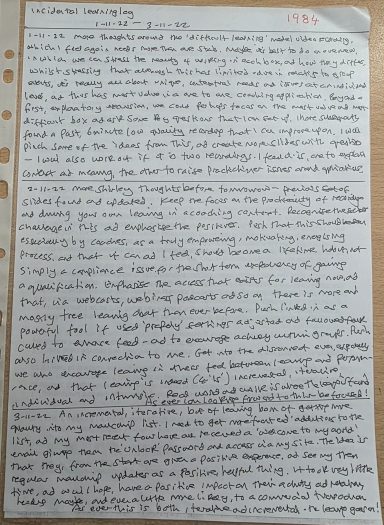 incidental learning log
1-11-22 - 3-11-22
1984
1-11-22 more thoughts around the 'difficult learning' model video recording,
which I feel again needs more than one stab. Maybe its best to do an overview,
in which we can stress the beauty of working in each box, and how they differ
whilst stressing that although this has limited value in reacting to group
events, its really all about unique, contextual needs and issues at an individual
level, so this has most value in a one to one coaching application. Beyond a
first, explanatory session, we could perhaps focus on the most value and most
difficult box and ask some key questions that I can set up. I have subsequently
found a past, 6 minute low quality recording that I can improve upon. I will
pinch some of the ideas from this, and create more slides with questions
- I will also work out if it is two recordings. I feel it is, one to explain
context and meaning, the other to raise practitioner issues around application.
2-11-22 more Shirley thoughts before tomorrow - previous set of
slides found and updated. Keep the focus on the practicality of
and owning your own learning in a coaching context. Recognise the
challenge in this and emphasise the positives. Push that this should be seen
especially by coaches, as a truly empowering, motivating, energising
process, and that it can and I feel, should become a lifetime habit, not
simply a compliance issue for the short term expediency of gaining
a qualification. Emphasise the access that exists for learning now, and
that, via webcasts, webinars, podcasts and so on there is more and
more free learning about than ever before. Push linked in as a
powerful tool if used 'properly'
to enhance feed - and to encourage activity within groups. Push
also in connection to me. Get into the disconnect even, especially
we who encourage learning in others feel between learning and perform-
ance, and that learning is indeed (is 'is') incremental, iterative,
individual and
As ever I am looking forward to this - be focused!
3-11-22 An incremental, iterative, bit of learning born of
into my mailchimp list. I need to get more additions to the
list, and my most recent few have all received a 'welcome to my world'
email giving them the 'unlock' password and access via my site. The idea is
that they, from the start are given a positive experience, and see my then
regular mailchimp updates as a positive, helpful thing. It took very little
time, and will I hope, have a positive impact on their activity and
reading maybe and even a little more likely, to a commercial transaction
As ever this is both iterative and incremental - the learning goes on!